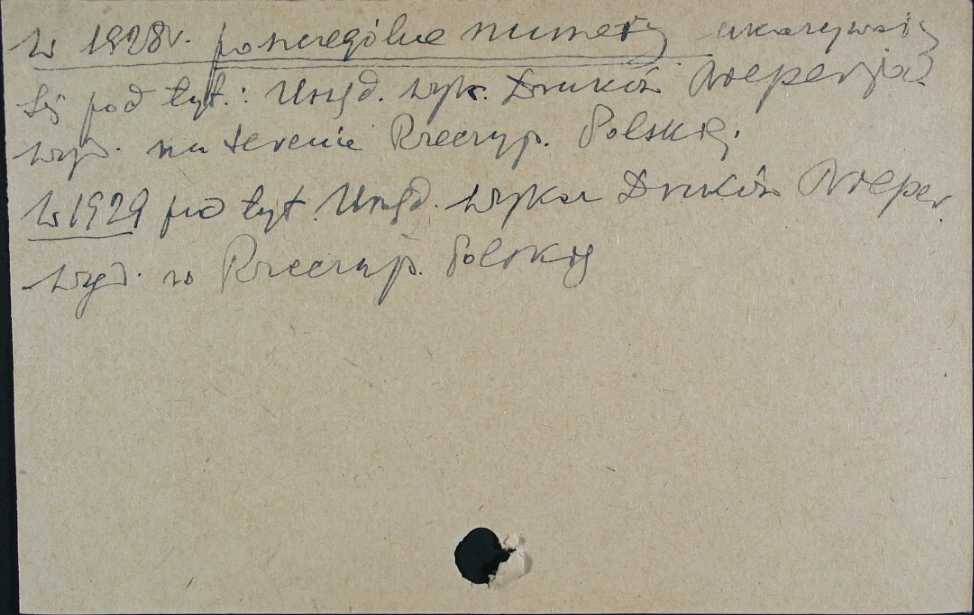 W 1928r. poszczególne numery ukazywały
się pod tyt.: Urzęd. wyk. Druków Nieperjod.
wyd. na terenie Rzeczyp. Polskiej.
W 1929 pod tyt. Urzęd. wykaz Druków Nieper.
wyd. w Rzeczyp. Polskiej